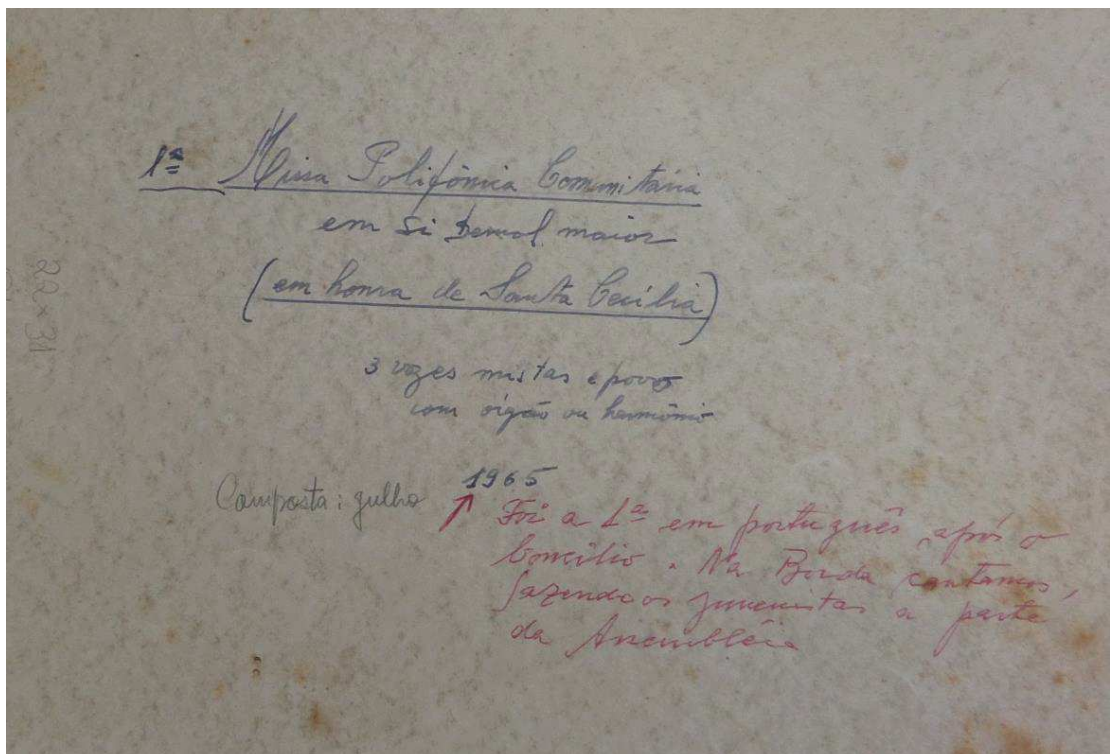 1ª Missa Polifônica Comunitária
em Si bemol maior
(em honra de Santa Cecília)
3 vozes mistas e povo
com órgão ou harmônio
Composta: julho 1965
Foi a 1ª em português, após o
Concílio. Na Borda cantamos,
fazendo os juvenistas a parte
da Assembléia
22x31